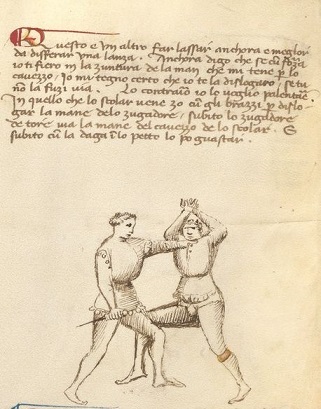 Questo e un altro far lassar anchora e meglor
da differar una lanza. Anchora digo che se cum forza
io ti fiero in la zuntura de la man che mi tene per lo
cavezzo, io mi tegno certo che io te la dislogaro, se tu
non la fuzi via. Lo contrario io lo voglio palentare
In quello che lo scolar vene zo cum gli brazzi per dislo
gar la mane delo zugadore, subito lo zugadore
de tore via la mane del cavezo de lo scolar. E
subito cum la daga in lo petto lo po guastar.